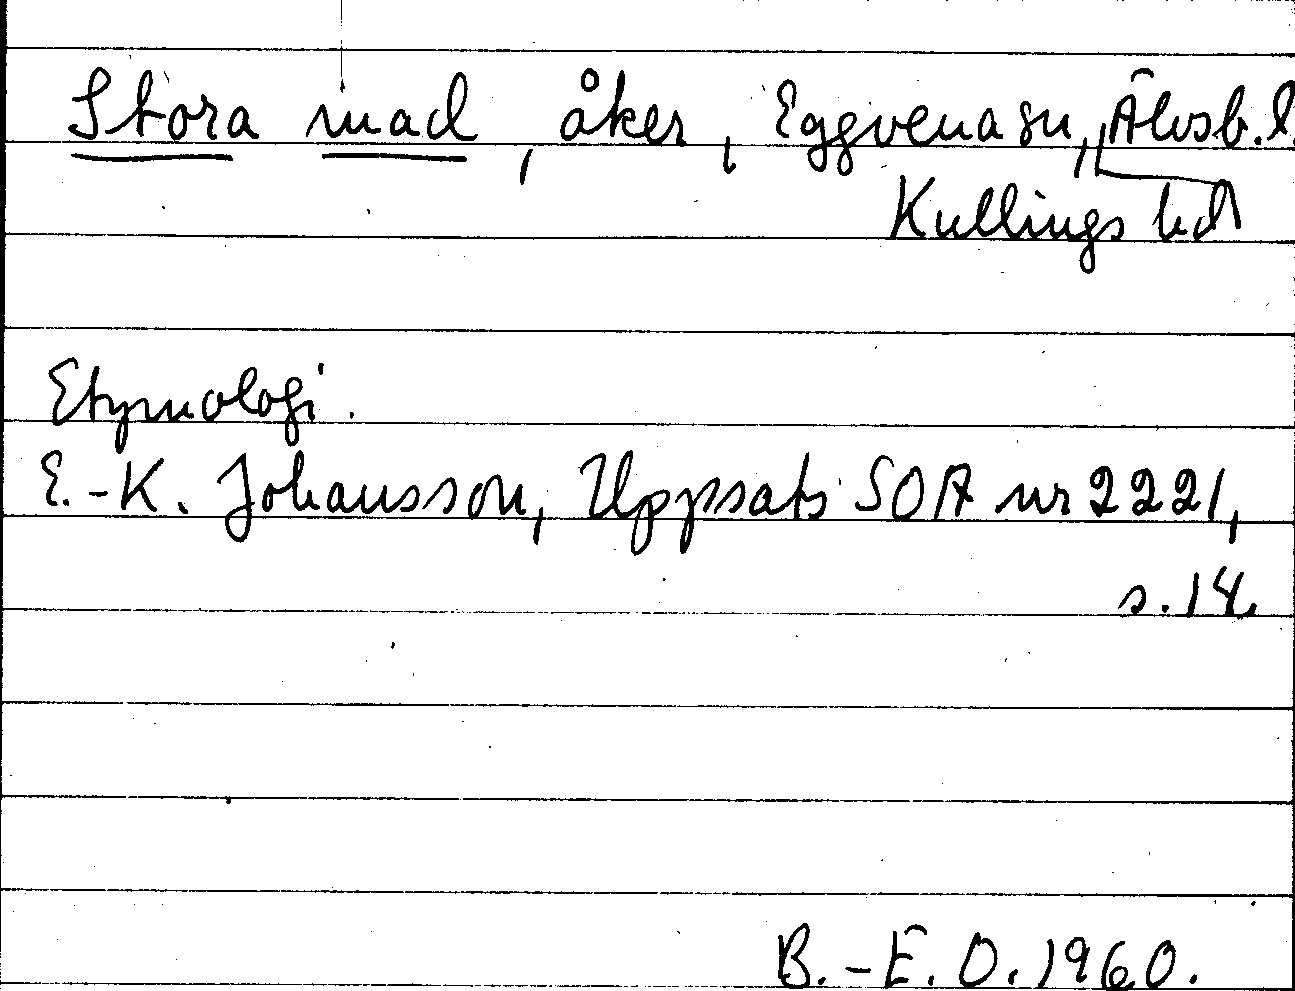 Stora mad, åker, Eggvena sn, Älvsb. l.
Kullings hd
Etymologi.
E.-K. Johansson, Uppsats SOA nr 2221,
s. 14.
B.-E. O. 1960.